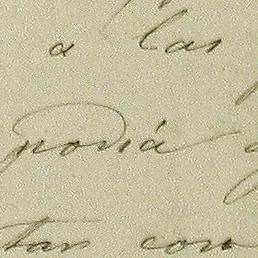 a las
ponia
tan con